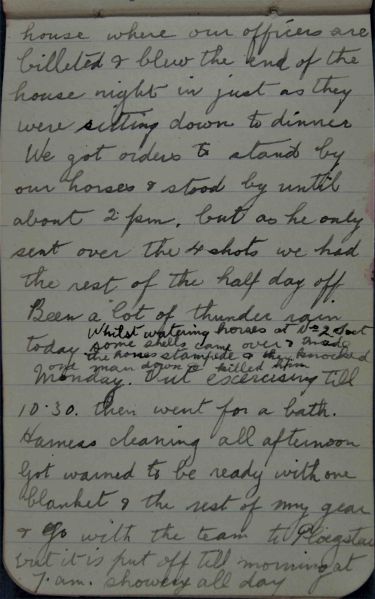 house where our officers are
billeted & blew the end of the
house right in just as they
were sitting down to dinner
We got orders to stand by
our horses & stood by until
about 2 pm. but as he only
sent over the 4 shots we had
the rest of the half day off
Been a lot of thunder rain
today Whilst watering horses at No 2 Sect
some shells came over & made
the horses stampede & they knocked
one man down & killed him
Monday. Out exercising till
10.30. then went for a bath.
Harness cleaning all afternoon
Got warned to be ready with one
blanket & the rest of my gear
& go with the team to
but it is put off till morning at
7 am. showery all day